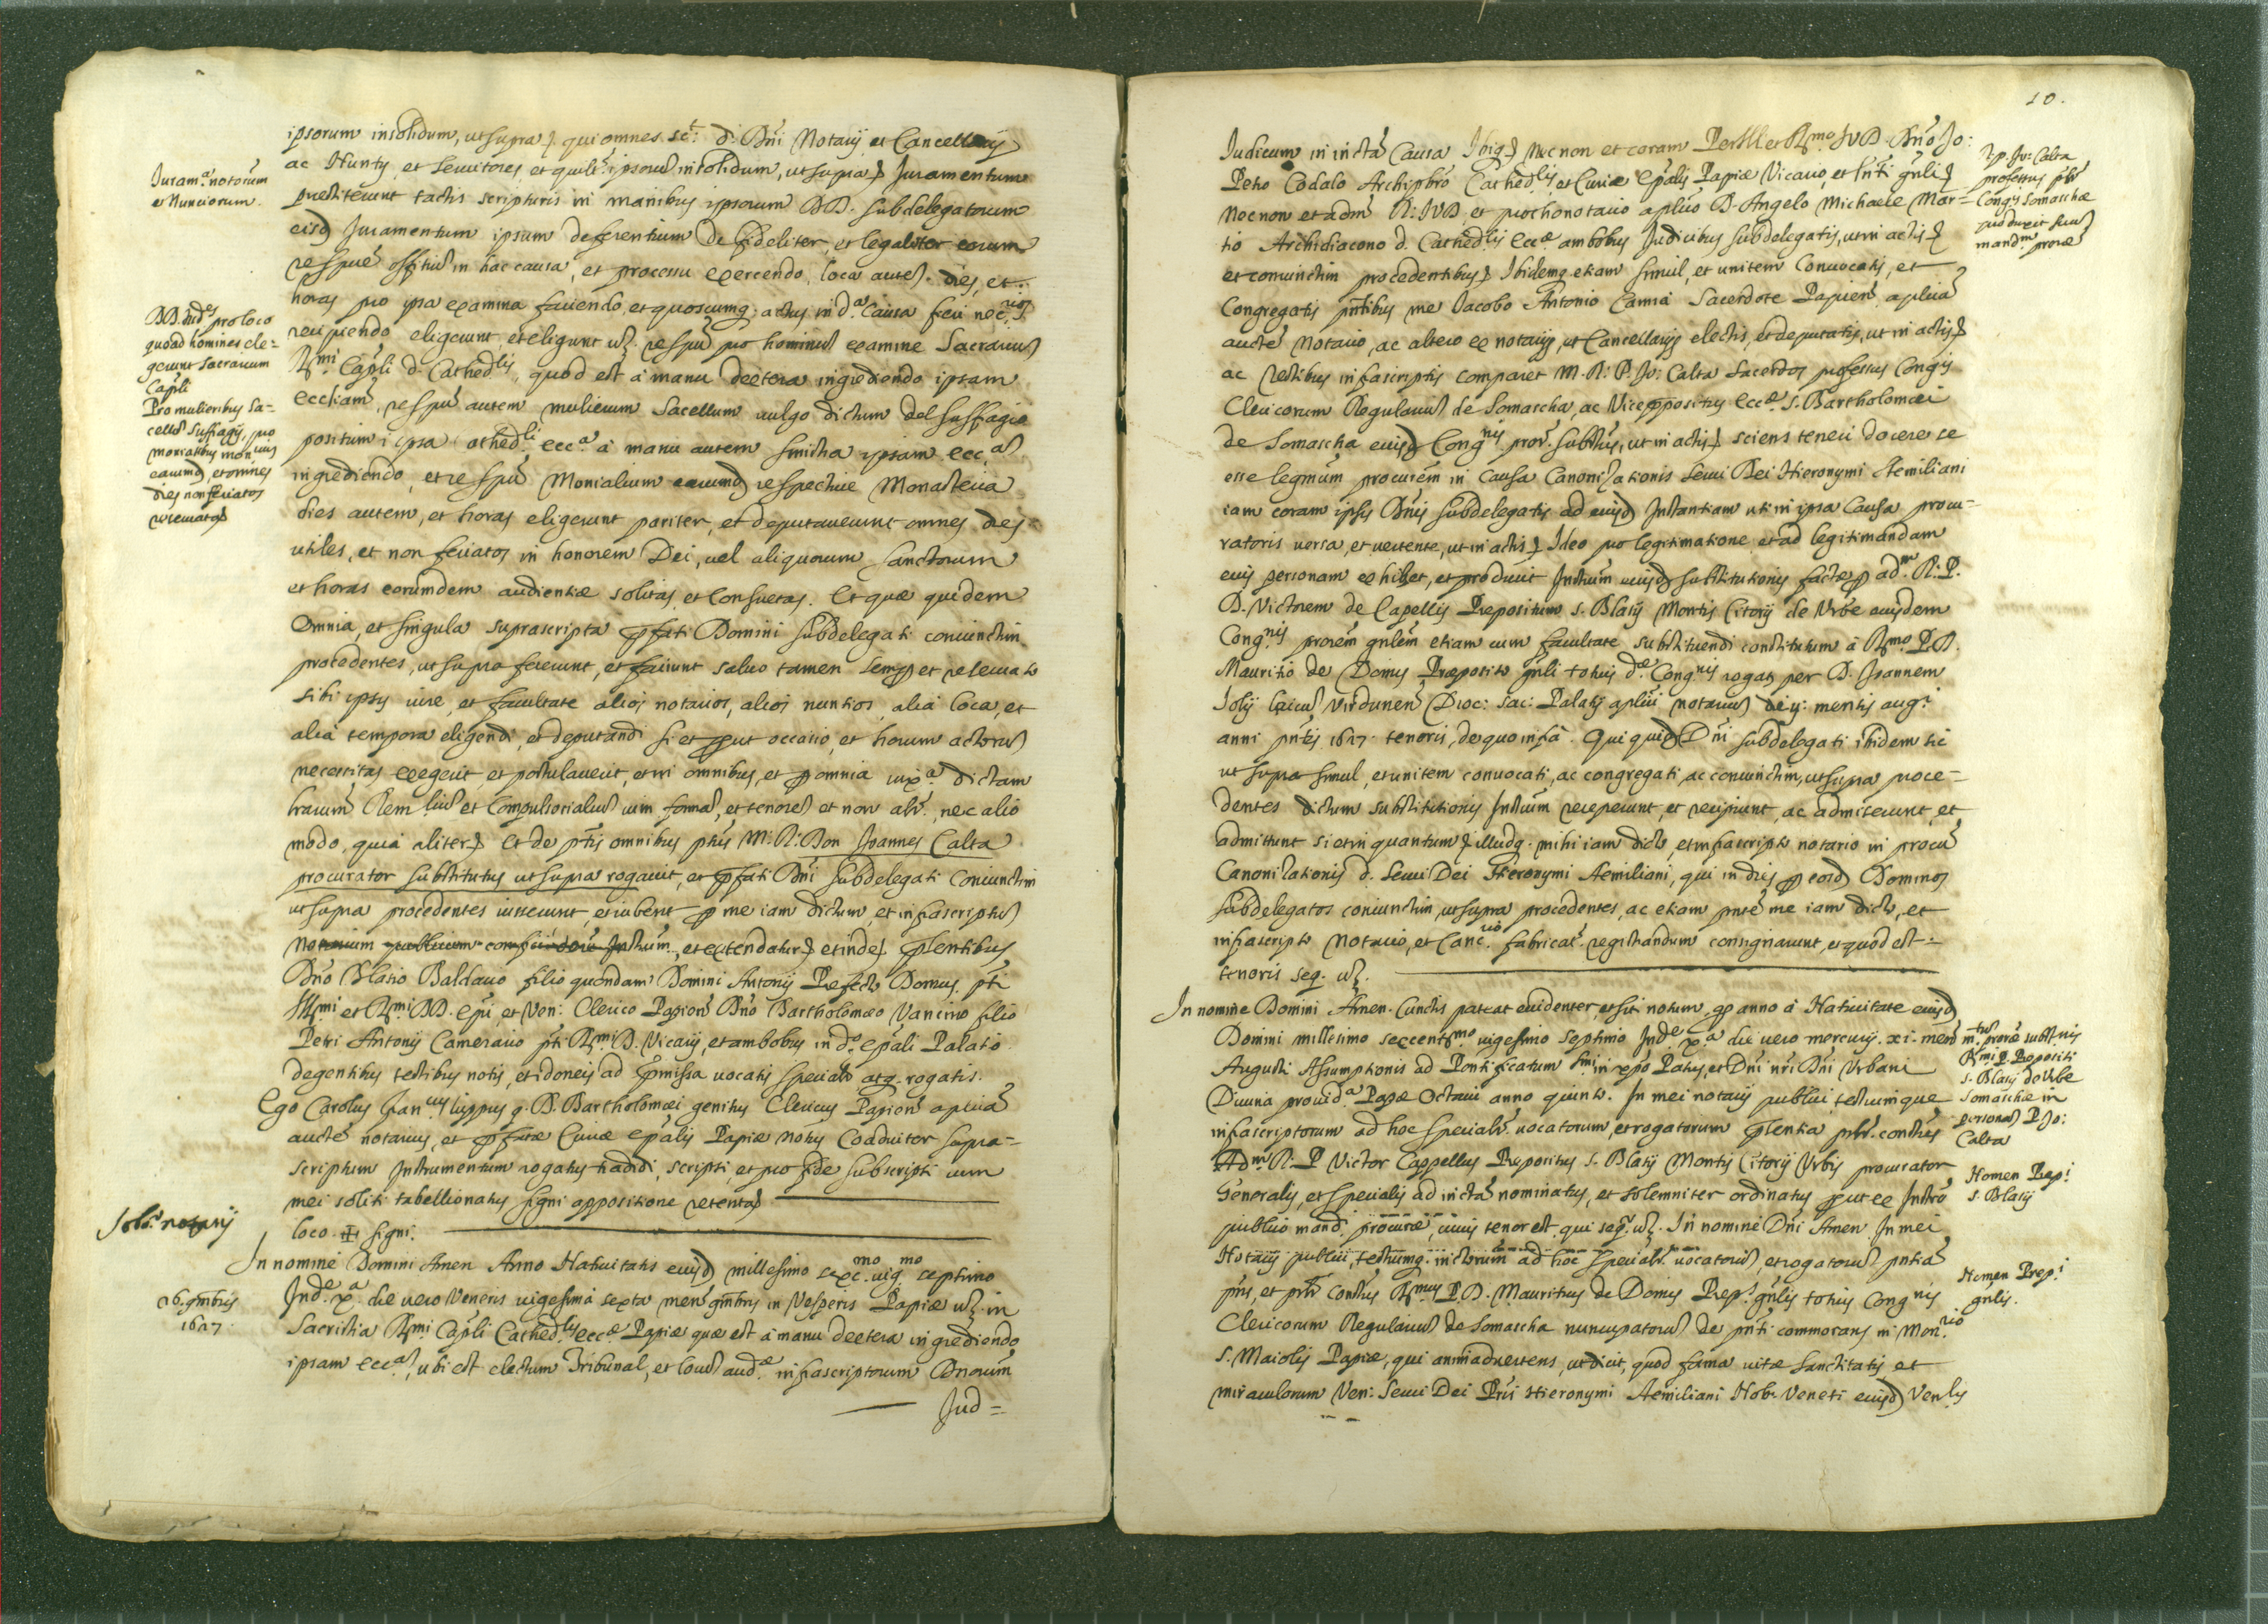 ipsorum insolidum, ut supra qui omnes. sct: d. Dñi Notarij et Cancellarij
ac Nuntij, et seruitores et quilt ipsorũ insolidum, ut supra Juramentum
prestiterunt tactis scripturis in manibus ipsorum DD. subdelegatorum
eisd Juramentum ipsum deferentium de fideliter, et legaliter eorum
respue offitiũ in hac causa, et processu exercendo, loca aute. dies, et
horas pro ipsa examina faciendo, et quoscumq. actus in d.ª Causa seu
recipiendo eligerunt, et eligunt uz. respũ pro hominũ examine Sacrariũ
R.mi Capli d. Cathed.lis, quod est à manu dextera ingrediendo ipsam
eccliam, respũ autem mulierum Sacellum uulgo dictum del suffragio
positum i ipsa athed.li ecc.ª à manu autem sinistra ipsam ecc.am
ingrediendo, et respũ Monialium earumd respectiue Monasteria
dies autem, et horas eligerunt pariter, et deputauerunt omnes dies
utiles, et non feriatos in honorem Dei, uel aliquorum sanctorum
et horas eorumdem audientiæ solitas, et Consuetas. Et quæ quidem
Omnia, et singula suprascripta pfati Domini subdelegati coniunctim
procedentes, ut supra fecerunt, et faciunt saluo tamen semp et reseruato
sibi ipsis iure, et facultate alios notarios, alios nuntios, alia loca, et
alia tempora eligendi, et deputandi si et put occasio, et horum actorũ
necessitas exegerit, et postulauerit, et in omnibus, et p omnia iux.ª dictam
trarum Rem.liũ et Compulsorialiũ uim formã, et tenorẽ et non alr, nec alio
modo, quia aliter Et de ptis omnibus ptus M: R: Don Joannes Calta
procurator substitutus ut supra rogauit, et pfati Dñi subdelegati Coniunctim
ut supra procedentes iusserunt, et iubent p me iam dictum, et infrascriptũ
Notarium publicum confici Instrum., et extendatur et inde plentibus
Dño Blasio Baldauo filio quondam Domini Antonij Prefecto Domus pti
Ill.mi et R.mi DD. epi, et Ven: Clerico Papien Dño Bartholomæo Vanino filio
Petri Antonij Camerario pti R.mi D. Vicarij, et ambobus in d.º epali Palatio
degentibus testibus notis, et idoneis ad pmissa uocatis specialr atq. rogatis.
Ego Carolus Jan luppus q. D. Bartholomæi genitus Clericus Papien aplica
aucte notarius, et pfatæ Curiæ epalis Papiæ Notus Coadiutor supra=
scriptum Instrumentum rogatus tradidi, scripsi, et pro fide subscripsi cum
mei soliti tabellionatus signi appositione
loco ✠ signi.
In nomine Domini Amen Anno Natiuitatis eiusd millesimo sexc.mo uig.mo septimo
Ind.e x.ª die uero Veneris uigesima sexta mens 9mbris in Vesperis Papiæ uz. in
Sacristia R.mi Capli Cathed.lis ecc.æ Papiæ quæ est à manu dextera ingrediendo
ipsam ecc.am, ubi est electum Tribunal, et locus aud.æ infrascriptorum Dnorum
Jud=
Juram.ª notorum
et Nunciorum.
DD. Jud.es pro loco
quoad homines ele=
gerunt sacrarium
Capli
Pro mulieribus sa=
cellũ suffragij, pro
monialibus mon
earumd, et omnes
dies non feriatos
26. 9mbris
1627
10.
Judicum in incta Causa Necnon et coram Per Ill et R.mo JVD. Dño Jo:
Petro Codalo Archipbro Cathed.lis, et Curiæ epalis Papiæ Vicario, et
Necnon et adm R: JVD, et prothonotario aplico D. Angelo Michaele Mar=
tio Archidiacono d. Cathed.lis ecc.æ ambobus Judicibus subdelegatis, ut in actis
et coniunctim procedentibus Ibidemq. etiam simul, et unitem Conuocatis, et
Congregatis pntibus me Jacobo Antonio Sacerdote Papien, aplica
aucte Notario, ac altero ex notarijs, ut Cancellarijs electis, et deputatis, ut in actis
ac testibus infrascriptis comparet M. R: P. Jo: Calta Sacerdos professus Congis
Clericorum Regulariũ de Somascha, ac Vicepositus ecc.æ S. Bartholomæi
de Somascha eiusd Congnis, ut in actis sciens teneri docere se
esse legmum procurem in Causa Canonizationis serui Dei Hieronymi Aemiliani
iam coram ipsis Dñis subdelegatis ad eiusd Instantiam uti in ipsa Causa procu=
ratoris uersa, et uertente, ut in actis Ideo pro legitimatione, et ad legitimandam
eius personam exhibet, et producit Instrum eiusd substitutionis factæ p ad.m R. P.
D. Victorem de Capellis Prepositum S. Blasij Montis Citorij de Vrbe eiusdem
Cong.nis prorem gnlem etiam cum facultate substituendi constitutum à R.mo P. D.
Mauritio de Domis Præposito gnli totius d.æ Cong.nis rogat per D. Joannem
Jolij laicũ Virdunen Dioc: Sac: Palatij aplici notariũ mensis augi
anni pntis 1627. tenoris, de quo infra. Qui quid Dñi subdelegati ibidem sic
ut supra simul, et unitem conuocati, ac congregati, ac coniunctim, ut supra proce=
dentes dictum substitutionis Instrum receperunt, et recipiunt, ac admiserunt, et
admittunt si et in quantum illudq. mihi iam dicto, et infrascripto notario in
Canonizationis d. Serui Dei Hieronymi Aemiliani, qui in dies p eosd Dominos
subdelegatos coniunctim, ut supra procedentes, ac etiam pnte me iam dicto, et
infrascripto Notario, et Canc.rio fabricat registrandum consignarunt, et quod est=
tenoris seq. uz.
In nomine Domini Amen. Cunctis pateat euidenter, et sit notum, qp anno à Natiuitate eiusd
Domini millesimo sexcent.mo uigesimo septimo Ind.e x.ª die uero mercurij. xi. mens
Augusti Assumptionis ad Pontificatum in xpo Patris, et Dñi nri Dñi Vrbani
Diuina prouid.ª Papæ Octaui anno quinto. In mei notarij publici, testiumque
infrascriptorum ad hoc specialr uocatorum, et rogatorum plentia
Ad.m R. P Victor Cappellus Prepositus S. Blasij Montis Citorij Vrbis procurator
Generalis, et specialis ad incta nominatus, et solemniter ordinatus put ex Instro
publico mand. procuræ, cuius tenor est, qui seqr uz. In nomine Dñi Amen. In mei
Notarij publici, testiumq. ad hoc specialr uocatorũ, et rogatorũ pntia
R.mus P. D. Mauritius de Domis Prep.s gnlis totius Congnis
Clericorum Regulariũ de Somascha nuncupatorũ de pnti commorans in Mon.rio
S. Maioli Papiæ, qui animaduertens, ut dicit, quod fama uitæ sanctitatis, et
miraculorum Ven: Serui Dei Pris Hieronymi Aemiliani Nob. Veneti eiusd Ven.lis
Jo: Calta
professus
Congis Somaschæ
produxit suũ
mand.m
R.mi P. Prepositi
S. Blasij de Vrbe
Somaschæ in
personã P. Jo:
Calta
Nomen Prep.i
S. Blasij
Nomen Prep.i
gnlis.